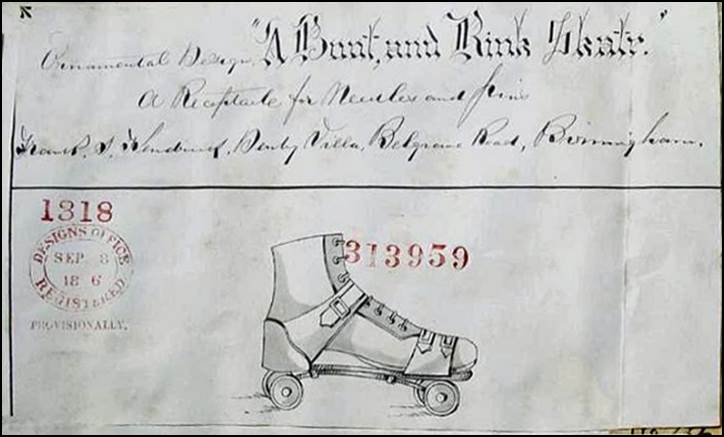 "A Boot, and Rink Skate."
Ornamental Design,
A Receptacle for Needles and Pins
Frank. S. Villa, Belgrave Road, Birmingham.
1318
DESIGNS OFFICE
SEP. 8
18 6
REGISTERED
PROVISIONALLY.
313959